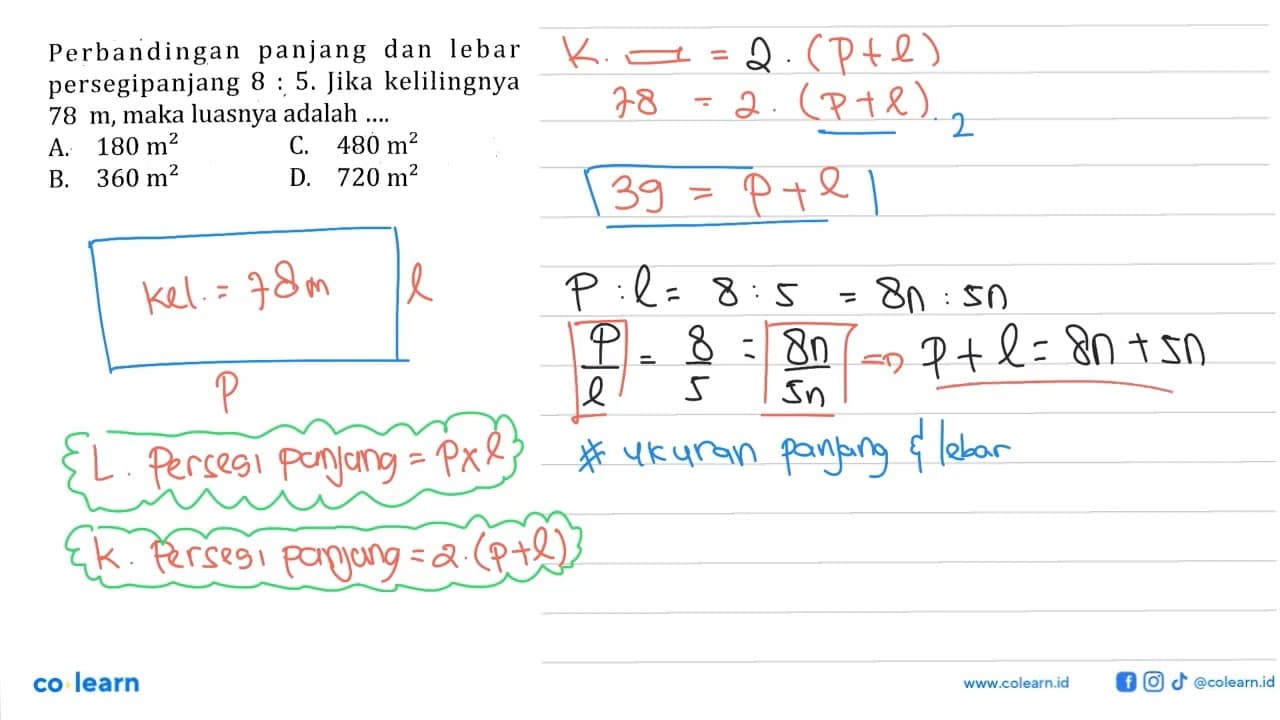 Perbandingan panjang dan lebar
persegipanjang 8 : 5. Jika kelilingnya
78 m, maka luasnya adalah ....
A. 180 m² C. 480 m²
B. 360 m² D. 720 m²
kel. = 78m
l
p
L. Persegi panjang = p x l
k. Persegi panjang = 2.(p+l)
K. = 2.(p+l)
78 = 2.(p+l).2
39 = p+l
P : l = 8 : 5 = 8n : 5n
p/l = 8/5 = 8n/5n => p+l = 8n+5n
# ukuran panjang & lebar
co learn
www.colearn.id
@colearn.id